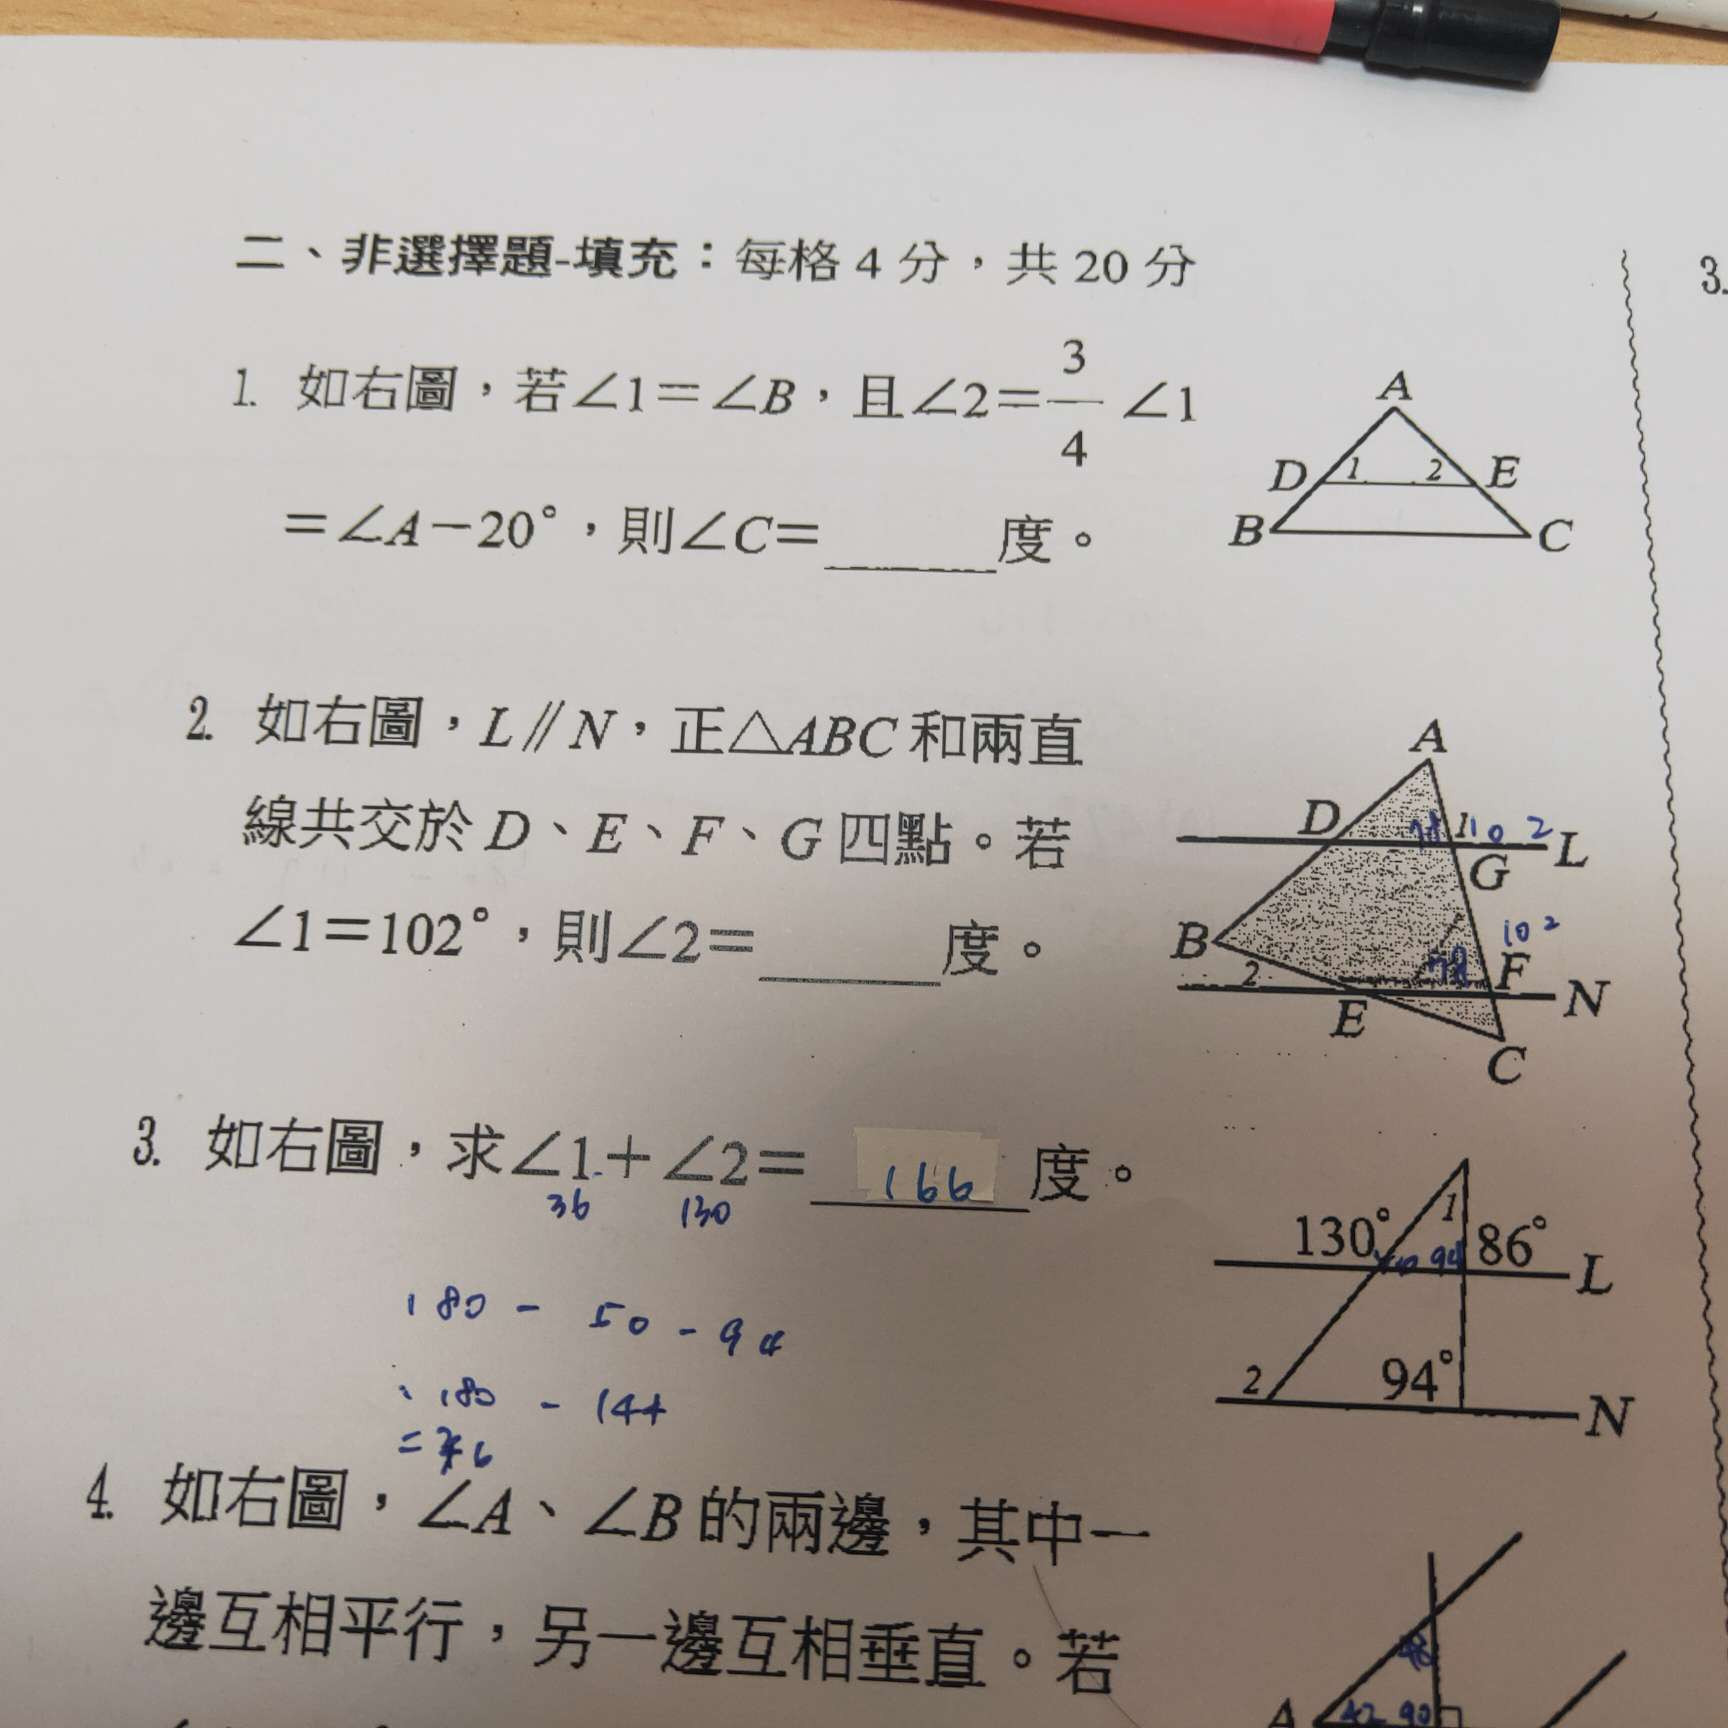 二、非選擇題-填充：每格 4 分，共 20 分
3.
1. 如右圖，若∠1＝∠B，且∠2＝3/4 ∠1
＝∠A－20°，則∠C＝______度。
A
D 1 2 E
B C
2. 如右圖，L∥N，正△ABC 和兩直
線共交於 D、E、F、G 四點。若
∠1＝102°，則∠2＝______度。
A
D 78 1 102 L
G
B 102
2 78 F N
E
C
3. 如右圖，求∠1＋∠2＝ 166 度。
36 130
1
130° 94 86° L
2 94° N
180 - 50 - 94
180 - 144
= 36
4. 如右圖，∠A、∠B 的兩邊，其中一
邊互相平行，另一邊互相垂直。若
48
A 42 90